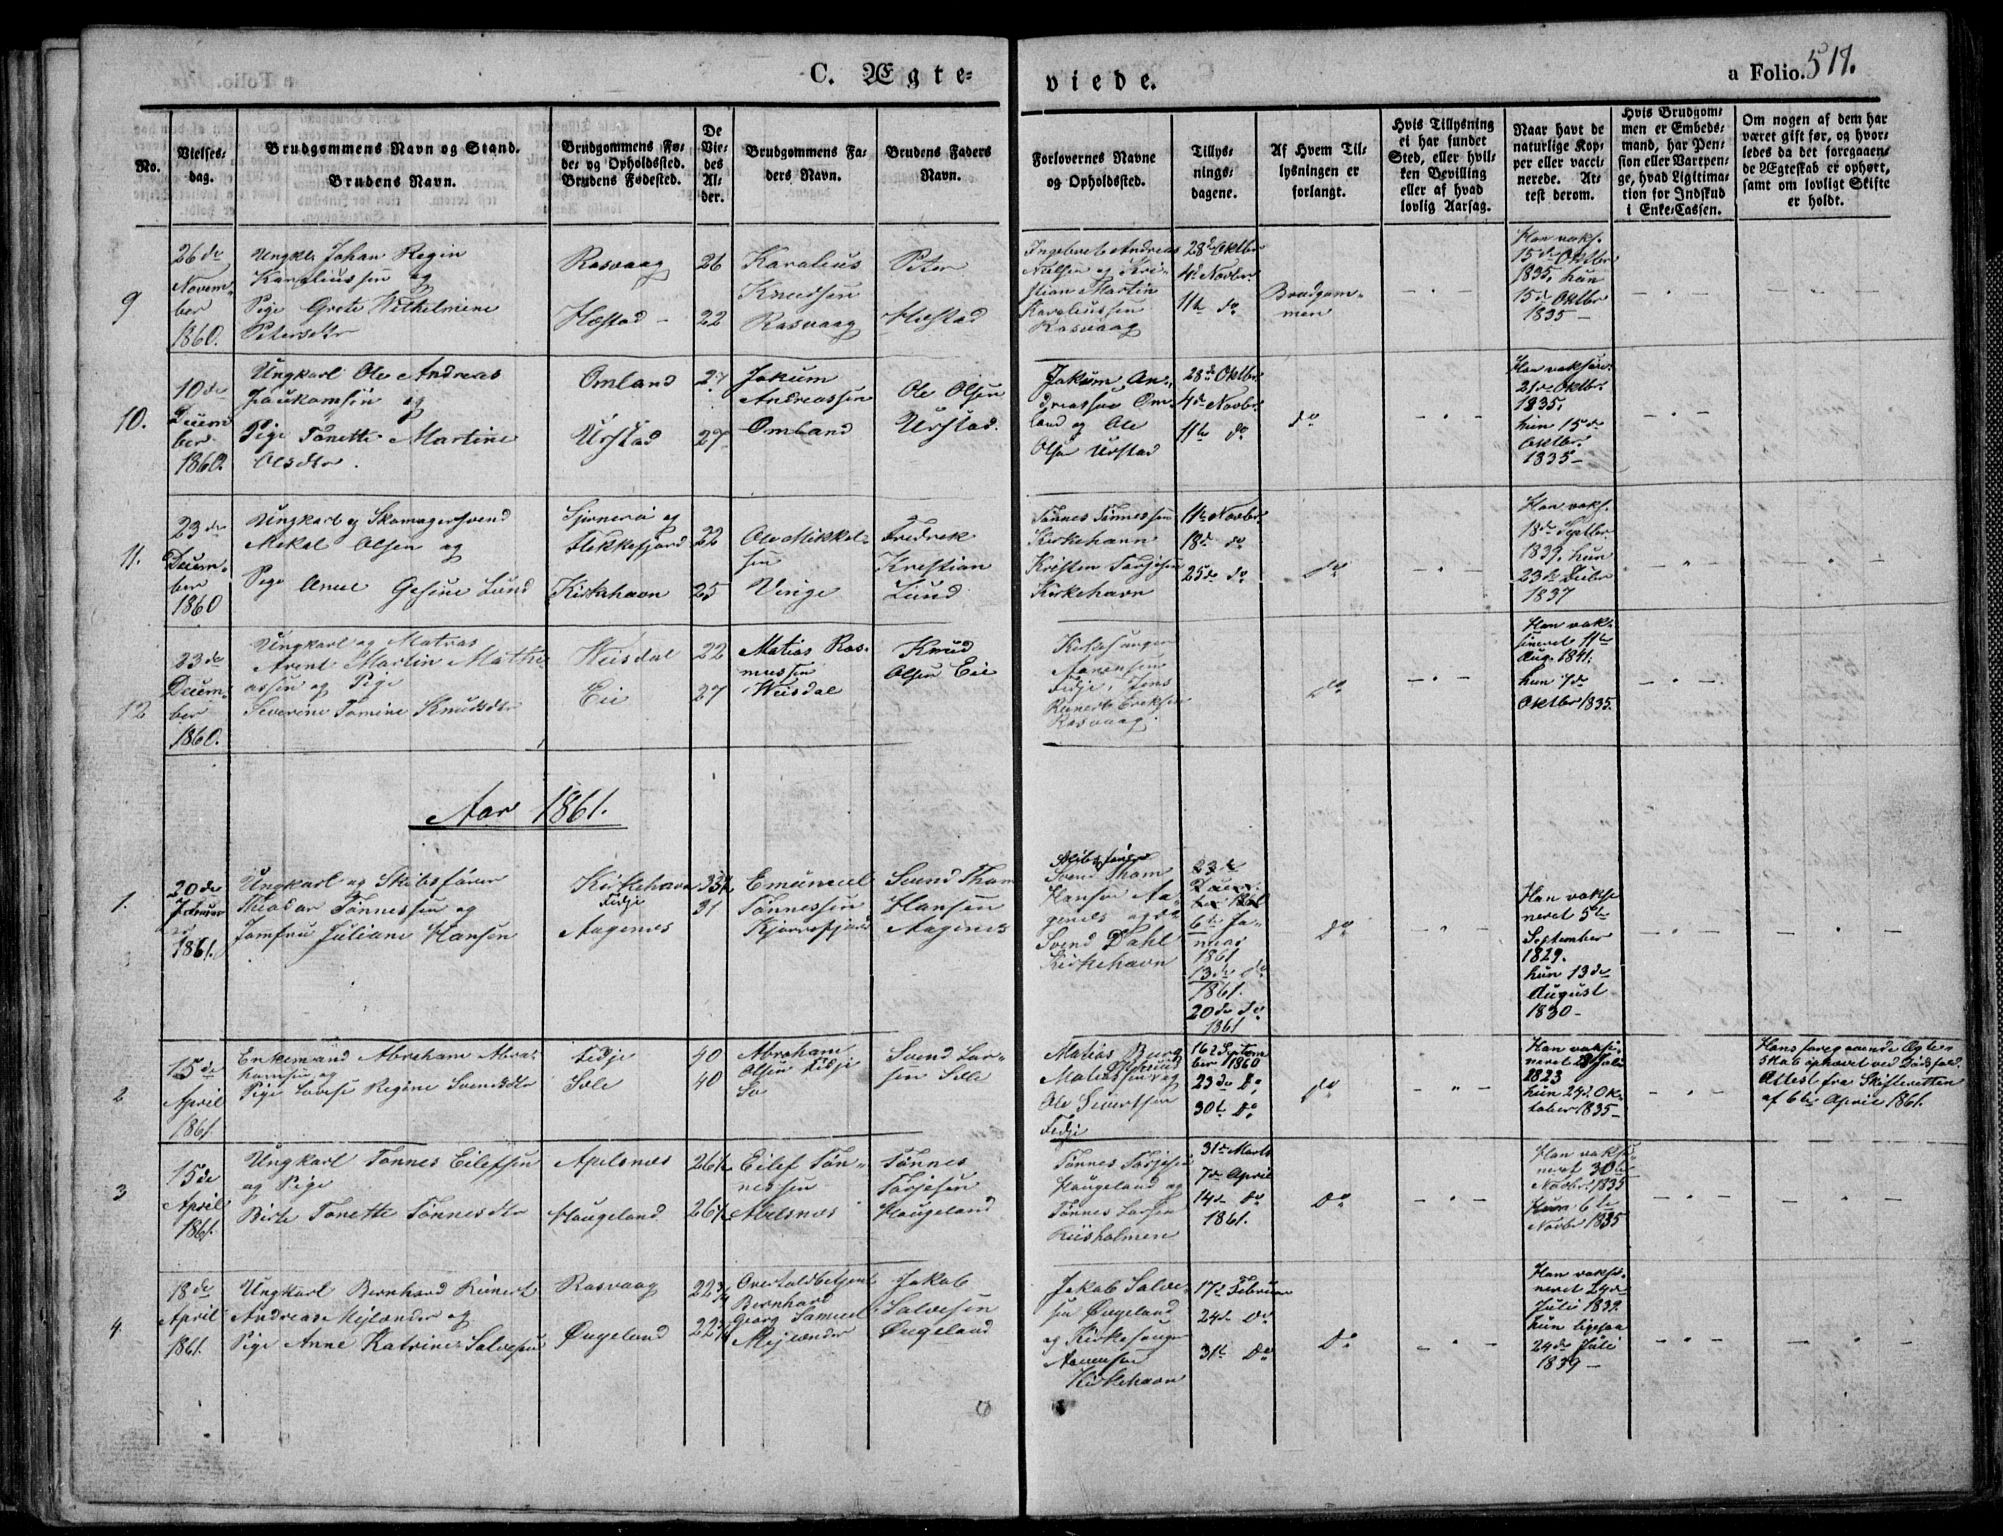 C. Ægte-
viede.
a Folio. 517.
No.
Vielses-
dag.
Brudgommens Navn og Stand.
Brudens Navn.
Brudgommens Fø-
de- og Opholdssted.
Brudens Fødested.
De
Vie-
des
Al-
der.
Brudgommens Fa-
ders Navn.
Brudens Faders
Navn.
Forlovernes Navne
og Opholdssted.
Tillys-
nings-
dagene.
Af Hvem Til-
lysningen er
forlangt.
Hvis Tillysning
ei har fundet
Sted, eller hvil-
ken Bevilling
eller af hvad
lovlig Aarsag.
Naar havt de
naturlige Kop-
per eller vacci-
nerede. At-
test derom.
Hvis Brudgom-
men er Embeds-
mand, har Pen-
sion eller Vartpen-
ge, hvad Ligitima-
tion for Indskud
i Enke-Cassen.
Om nogen af dem har
været gift før, og hvor-
ledes da det foregaaen-
de Ægteskab er ophørt,
samt om lovligt Skifte
er holdt.
9
26de
Novem-
ber
1860.
Ungk. Johan Regin
Kareliussen og
Pige Grete Wilhelmine
Petersdtr
Rasvaag
Hæstad
26
22
Karelius
Knudsen
Rasvaag
Peter
Hæstad
Ingebret Andreas
Nielsen og Kri-
stian Martin
Kareliussen
Rasvaag
28de Oktbr
4de Novbr
11te do
Brudgom-
men
Han vaks.
15de Oktbr
1835, hun
15de Oktbr
1835
10.
10de
Decem-
ber
1860.
Ungkarl Ole Andreas
Jaukomsen og
Pige Tonette Martine
Olsdtr.
Omland
Urstad
27
27
Jokum
Andreassen
Omland
Ole Olsen
Urstad.
Jokum An-
dreassen Om-
land og Ole
Olsen Urstad
28de Oktbr.
4de Novbr.
11te do
do
Han vaksine.
21de Oktbr.
1835,
hun 15de
Oktbr.
1835
11.
23de
Decem-
ber
1860
Ungkarl og Skomagersvend
Mekal Olsen og
Pige Anne Gesine Lund
Sjernerø og
Flekkefjord
Kirkehavn
22
25
Ole Mikkel-
sen
Vinge
Fredrek
Kristian
Lund
Tønnes Tønnessen
Kirkehavn
Kristen Torjesen
Kirkehavn
11te Novbr.
18de do
25de do
do
Han vaks.
18de Septbr
1839, hun
23de Decbr
1837
12
23de
Decem-
ber
1860.
Ungkarl og Matros
Arent Martin Mathi-
assen og Pige
Severine Tomine Knudsdtr
Weisdal
Eie
22
27
Matias Ras-
mussen
Weisdal
Knud
Olsen Eie
Kirkesanger
Aanensen
Fedje, Jens
Reinert Ereksen
Rasvaag.
do
Han vak-
sineret 11te
Aug. 1841.
hun 7de
Oktbr 1835.
Aar 1861.
1.
20de
Januar
1861.
Ungkarl og Skibsfører
Theodor Tønnessen og
Jomfru Juliane Hansen
Kirkehavn
Fedje
Aagenes
33½
31
Emanuel
Tønnessen
Kjørrefjord
Svend Thom
Hansen
Aagenes
Skibsfører
Svend Thom
Hansen Aa-
genes og
Svend Dahl
Kirkehavn
23de
Decem-
ber 1860
6te Ja-
nuar
1861
13de do
1861.
20de do
1861
do
Han vaksi-
neret 5te
September
1829.
hun 13de
August
1830
2
15de
April
1861.
Enkemand Abraham Abra-
hamsen og
Pige Lovise Regine Svendsdtr
Fedje
Sæle
40
40
Abraham
Olsen Fedje
Svend Lar-
sen Sæle
Matias Berg
Matiassen og
Ole Sivertsen
Fedje
16de Septem-
ber 1860
23de do
30te do
do
Han vaksi-
neret Juli
1823
hun 24de Ok-
tober 1835
Hans foregaaende Ægte-
skab ophævet ved Dødsfald.
Attest fra Skifteretten
af 6te April 1861.
3
15de
April
1861.
Ungkarl Tønnes Eilefsen
og Pige
Birte Tonette Tønnesdtr
Apelsnes
Haugeland
26½
26½
Eilef Tøn-
nessen
Abelsnes
Tønnes
Torjesen
Haugeland
Tønnes Torjesen
Haugeland og
Tønnes Larsen
Kiisholmen
31te Marts
7de April
14de do
1861.
do
Han vaksi-
neret 30te
Novbr. 1835
Hun 6te
Novbr 1835
4
18de
April
1861.
Ungkarl Bernhard Reinert
Andreas Mejlænder og
Pige Anne Katrine Salvesen
Rasvaag
Øugeland
22¾
22¾
Overtoldbetjent
Bernhard
Georg Samuel
Mejlænder
Jakob
Salvesen
Øugeland
Jakob Salve-
sen Øugeland
og Kirkesanger
Aanensen
Kirkehavn
17de Februar
24de do
31te do
do
Han vaksi-
neret 24de
Juli 1839.
hun ligesaa
24de Juli
1839